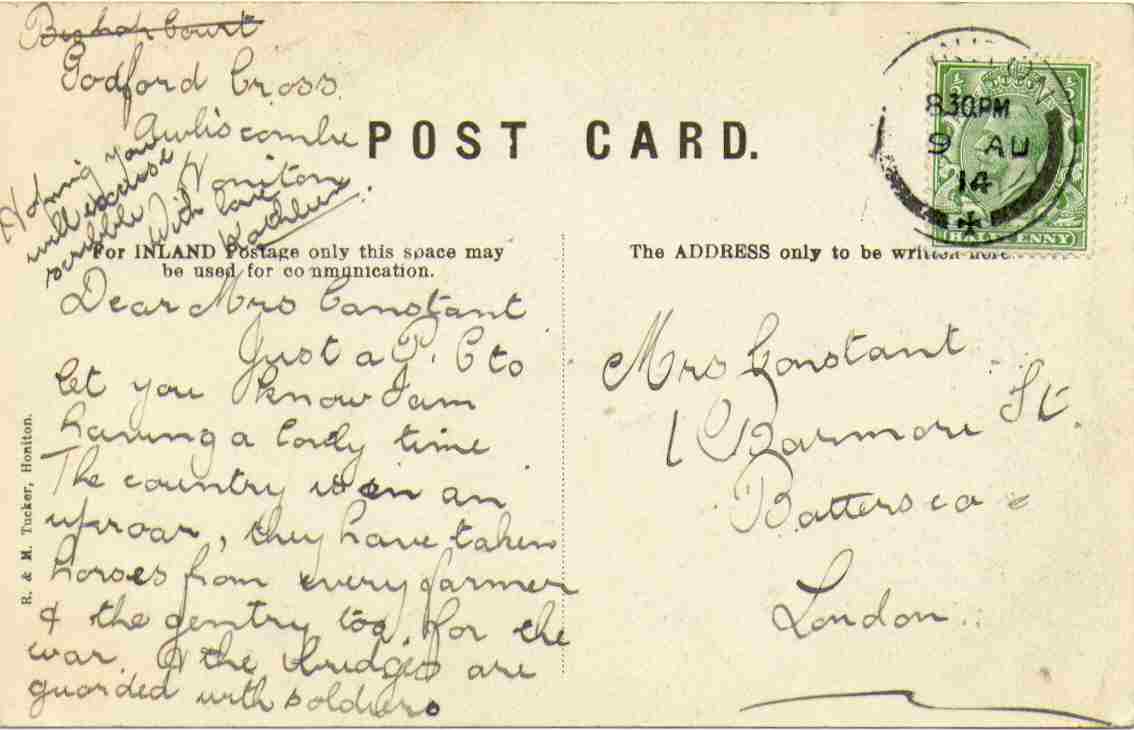 Bishop Court
Godford Cross
Awliscombe
Honiton
Hoping you
will excuse
scribble
With love
Kathleen
POST CARD.
For INLAND Postage only this space may
be used for communication.
The ADDRESS only to be written here.
8.30PM
9 AU
14
HALFPENNY
Dear Mrs Constant
Just a P. C to
let you know I am
having a lovely time
The country is in an
uproar, they have taken
horses from every farmer
& the gentry too, for the
war. & the bridges are
guarded with soldiers
Mrs Constant
1 Barmore St.
Battersea
London
R. & M. Tucker, Honiton.